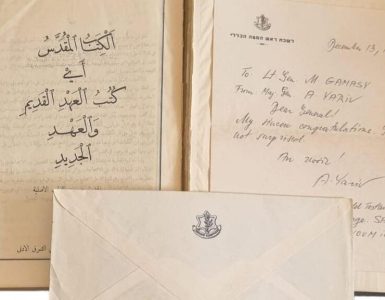 الكِتَابُ المُقَدَّسُ
أَيْ
كُتُبُ العَهْدِ القَدِيمِ
وَالعَهْدِ
الجَدِيدِ
לשכת ראש המטה הכללי
December 13,
To Lt Gen M. GAMASY
From Maj Gen A. YARIV
Dear General!
My sincere congratulations.
not surprised.
Au revoir!
A. Yariv